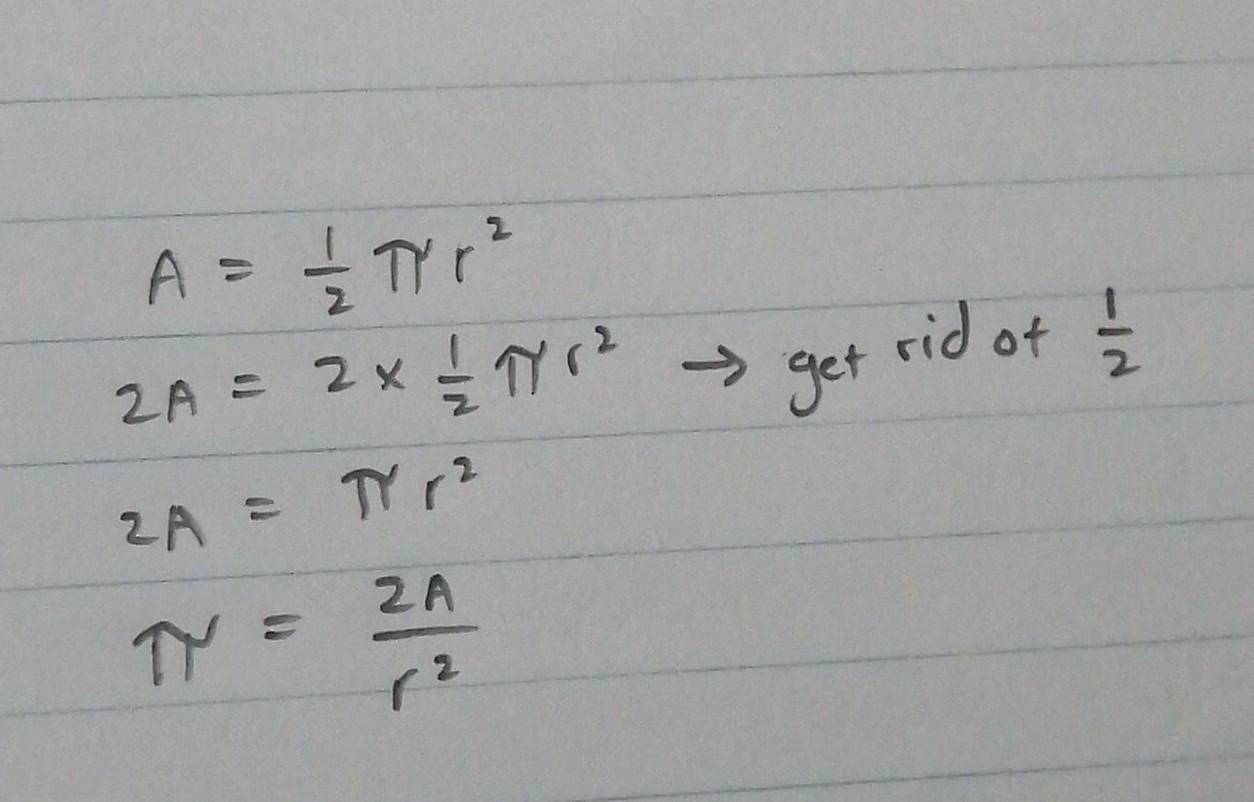 A = 1/2 πr²
2A = 2 × 1/2 πr² → get rid of 1/2
2A = πr²
π = 2A/r²